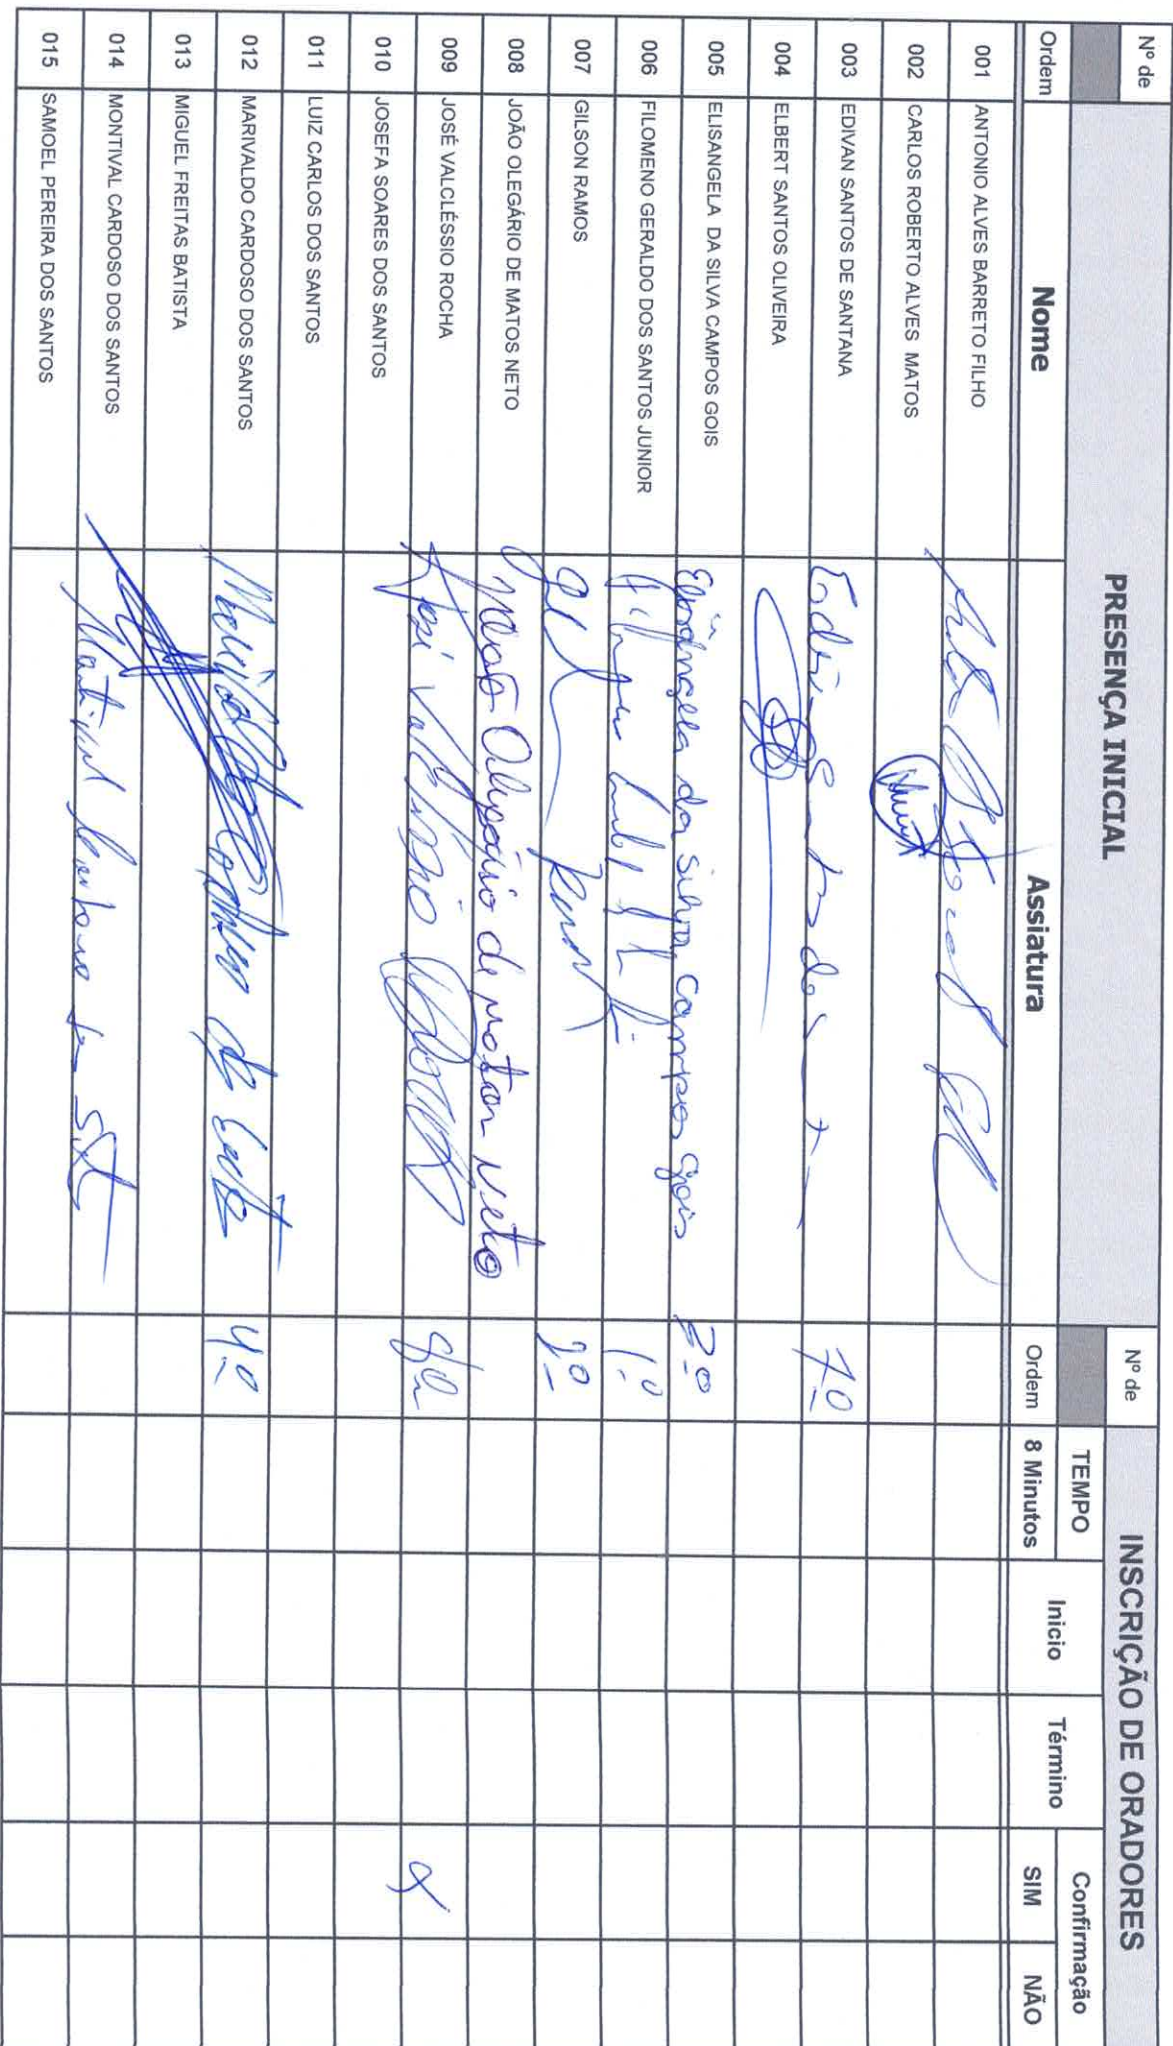 Nº de PRESENÇA INICIAL Nº de INSCRIÇÃO DE ORADORES
TEMPO Inicio Término Confirmação
Ordem Nome Assiatura Ordem 8 Minutos SIM NÃO
001 ANTONIO ALVES BARRETO FILHO
002 CARLOS ROBERTO ALVES MATOS
003 EDIVAN SANTOS DE SANTANA 7º
004 ELBERT SANTOS OLIVEIRA
005 ELISANGELA DA SILVA CAMPOS GOIS Elisângela da Silva Campos Gois
006 FILOMENO GERALDO DOS SANTOS JUNIOR 1º
007 GILSON RAMOS
008 JOÃO OLEGÁRIO DE MATOS NETO João Olegário de Matos Neto
009 JOSÉ VALCLÉSSIO ROCHA José Valcléssio X
010 JOSEFA SOARES DOS SANTOS
011 LUIZ CARLOS DOS SANTOS
012 MARIVALDO CARDOSO DOS SANTOS 4º
013 MIGUEL FREITAS BATISTA
014 MONTIVAL CARDOSO DOS SANTOS
015 SAMOEL PEREIRA DOS SANTOS